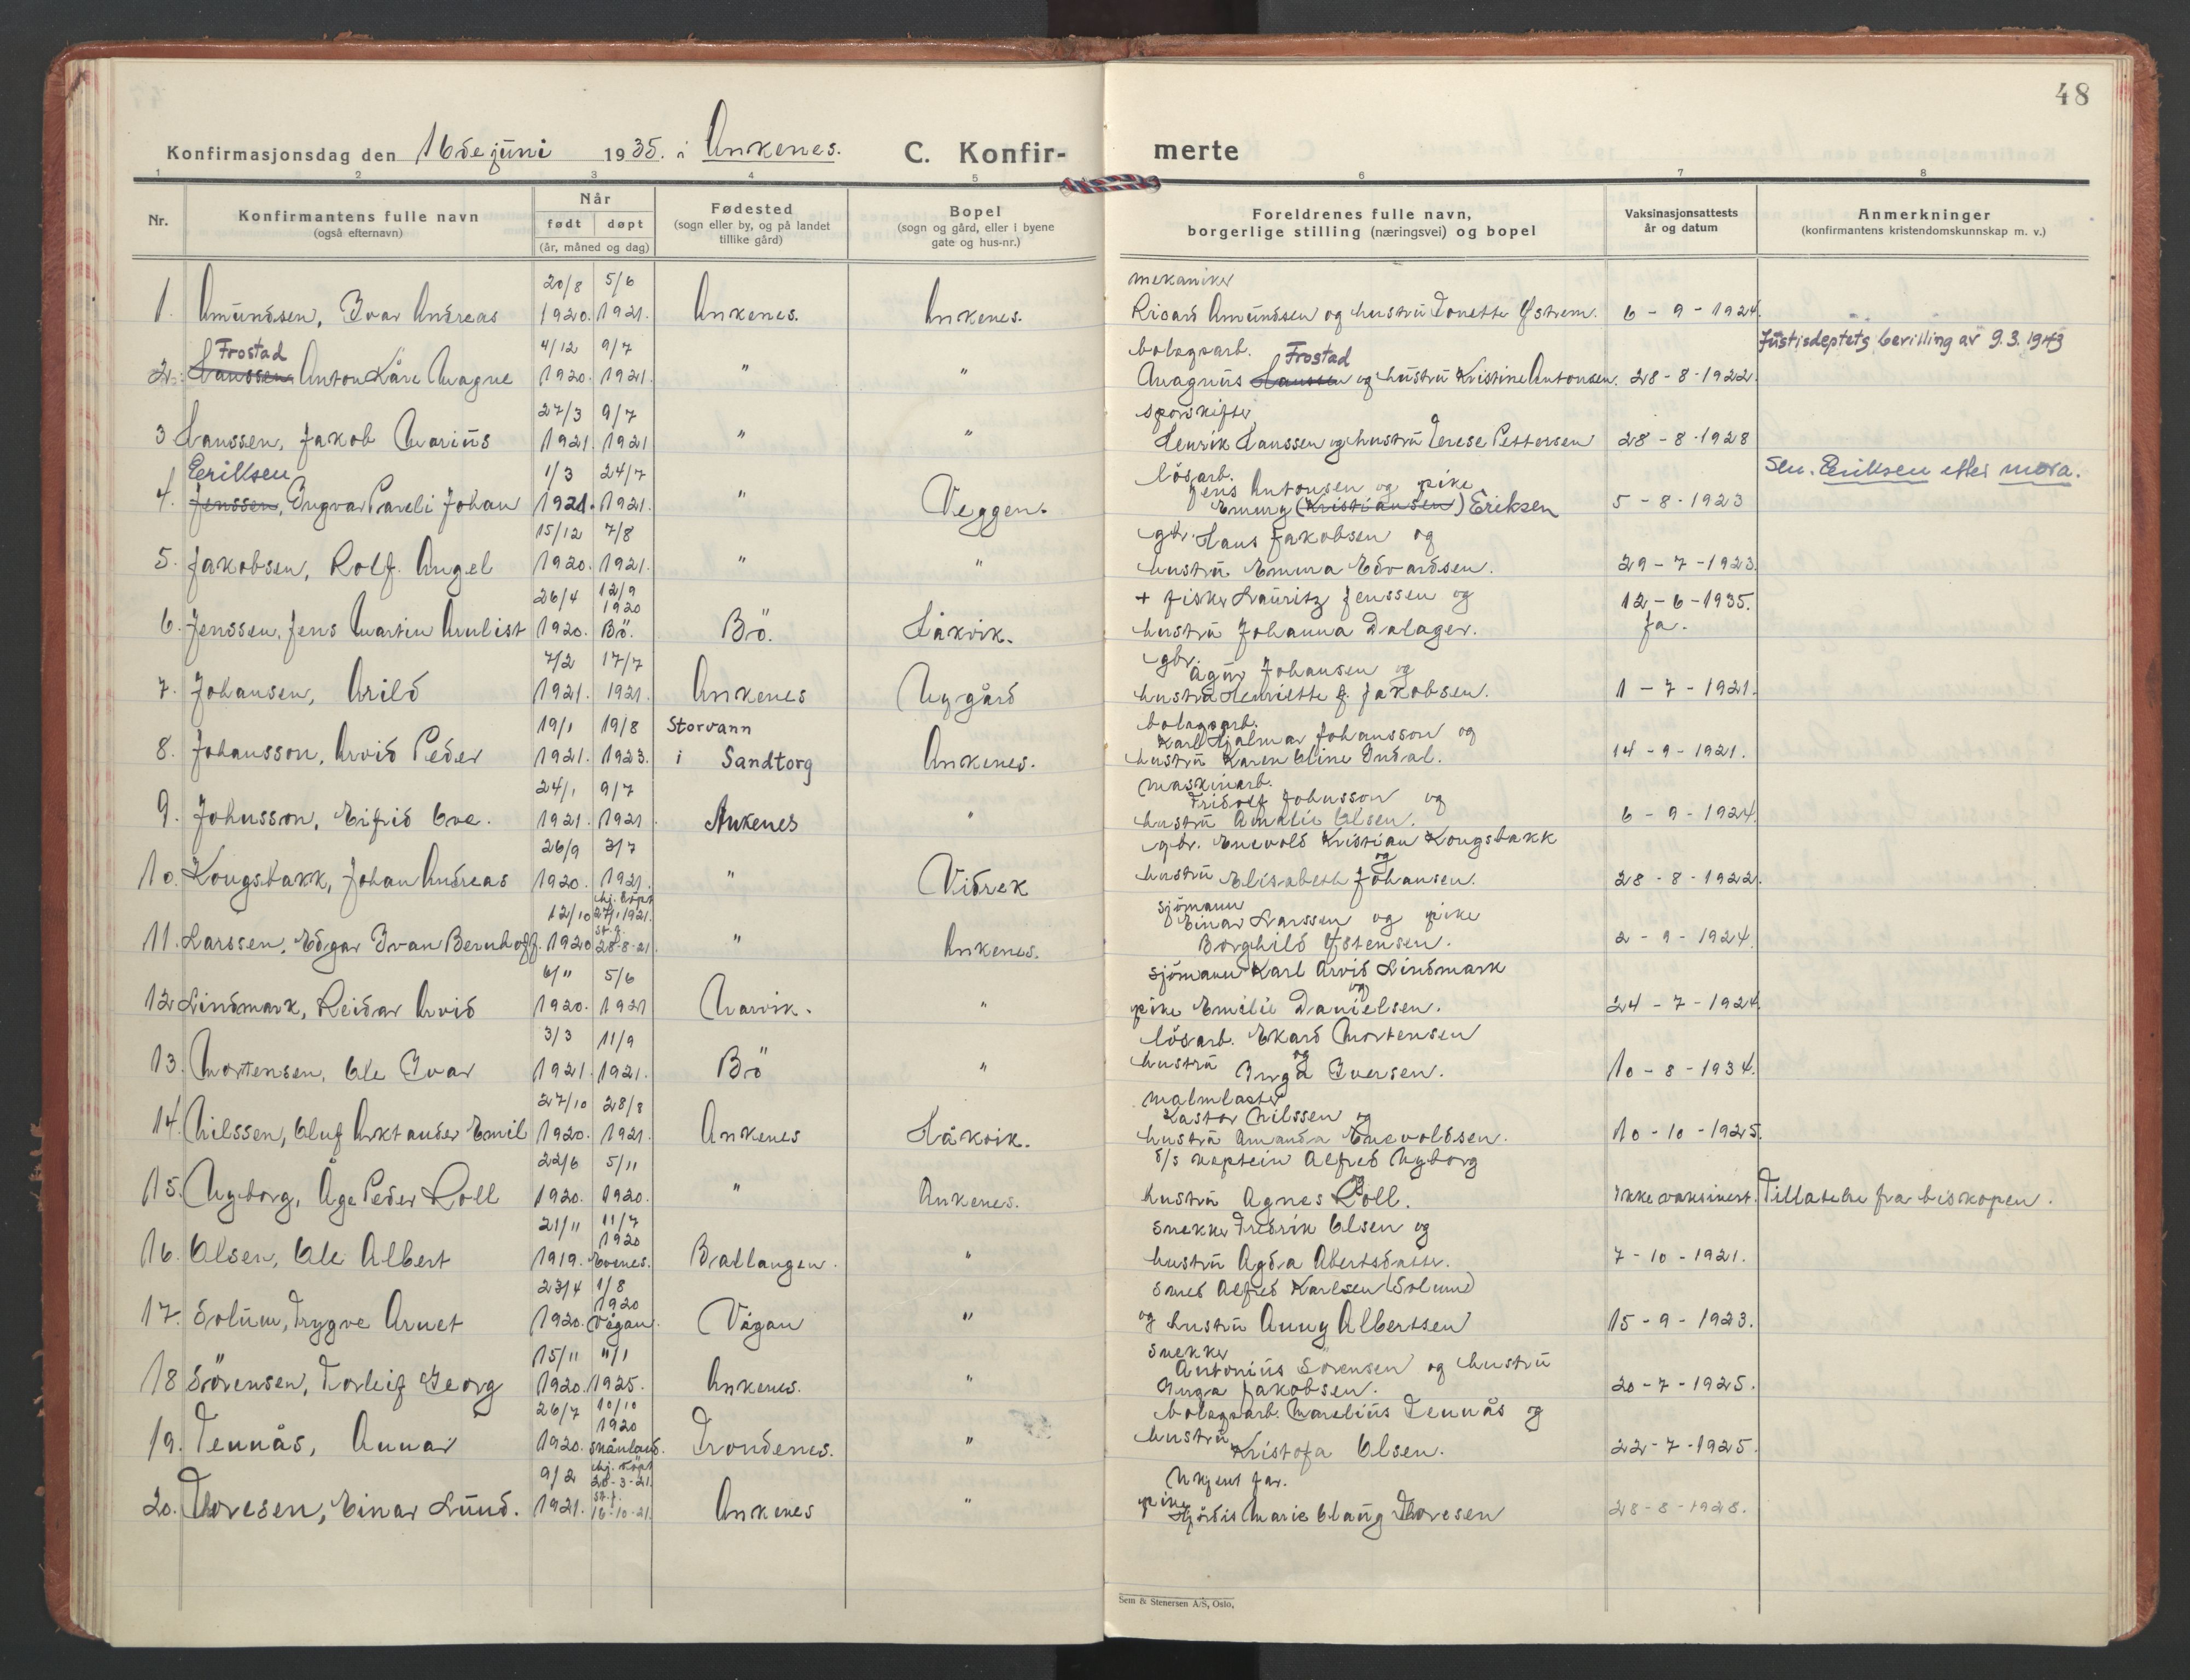 48
Konfirmasjonsdag den 16de juni 1935. i Ankenes. C. Konfir- merte
1 2 3 4 5 6 7 8
Nr. Konfirmantens fulle navn (også efternavn) Når født døpt (år, måned og dag) Fødested (sogn eller by, og på landet tillike gård) Bopel (sogn og gård, eller i byene gate og hus-nr.) Foreldrenes fulle navn, borgerlige stilling (næringsvei) og bopel Vaksinasjonsattests år og datum Anmerkninger (konfirmantens kristendomskunnskap m. v.)
20/8 5/6 mekaniker
1. Amundsen, Ivar Andreas 1920. 1921. Ankenes. Ankenes. Rikard Amundsen og hustru Tonette Ystrem. 6-9-1924.
Frostad 4/12 9/7 bolagsarb. Frostad Justisdeptets bevilling av 9.3.1943
2. Hanssen, Anton Kåre Magne 1920. 1921. " " Magnus Hanssen og hustru Kristine Antonsen. 28-8-1922.
27/3 9/7 sporskifter
3 Hanssen, Jakob Marius 1921. 1921 " " Henrik Hanssen og hustru Terese Pettersen 28-8-1928
Eriksen 1/3 24/7 løsarb. Jens Antonsen og pike Sln. Eriksen etter mora.
4. Jenssen, Ingvar Pareli Johan 1921. 1921. " Veggen. Emmy (Kristiansen) Eriksen 5-8-1923
15/12 7/8 gbr. Hans Jakobsen og
5. Jakobsen, Rolf Angel 1920. 1921. " " hustru Emma Edvardsen. 29-7-1923.
26/4 12/9 1920 + fisker Lauritz Jenssen og 12-6-1935.
6. Jenssen, Jens Martin Arnlist 1920. Bö. Bö. Håkvik. hustru Johanna Dalager. Ja.
7/2 17/7 gbr. Ågur Johansen og
7. Johansen, Arild 1921. 1921. Ankenes Nygård hustru Henriette f. Jakobsen. 1-7-1921.
19/1 19/8 Storvann bolagsarb. Karl Hjalmar Johansson og
8. Johansson, Arvid Peder 1921. 1923. i Sandtorg Ankenes. hustru Karen Oline Indal. 14-9-1921.
24/1 9/7 maskinarb. Fridolf Johnsson og
9. Johnsson, Eifrid Ove. 1921. 1921. Ankenes " hustru Amalie Olsen. 6-9-1924.
26/9 3/7 gbr. Enevold Kristian Kongsbakk og
10. Kongsbakk, Johan Andreas 1920. 1921. " Vidrek hustru Elisabeth Johansen. 28-8-1922.
12/10 hj. døpt 27/1 1921. sjømann Einar Larssen og pike
11. Larssen, Edgar Ivan Bernhoff. 1920 28-8-21. " Ankenes. Borghild Ystensen. 2-9-1924.
6/11 5/6 sjømann Karl Arvid Lindmark og
12 Lindmark, Reidar Arvid 1920. 1921 Narvik. " pike Emilie Danielsen. 24-7-1924.
3/3 11/9 løsarb. Ekard Mortensen og
13. Mortensen, Ole Ivar 1921. 1921. Bö " hustru Inga Iversen. 10-8-1934.
27/10 28/8 malmlaster Kastor Nilssen og
14. Nilssen, Oluf Arktander Emil 1920. 1921. Ankenes Håkvik. hustru Amanda Enevoldsen. 10-10-1925.
22/6 5/11 d/s kaptein Alfred Nyborg og
15. Nyborg, Åge Peder Roll 1920. 1920. " Ankenes. hustru Agnes Roll. Ikke vaksinert. Tillatelse fra biskopen.
21/11 11/7 1920 snekker Fredrik Olsen og
16. Olsen, Ole Albert 1919. Evenes. Ballangen. " hustru Agda Albertsdatter. 7-10-1921.
23/4 1/8 1920 Smed Alfred Karlsen (Solum)
17. Solum, Trygve Arnet 1920. Vågan. Vågan " og hustru Anny Albertsen 15-9-1923.
15/11 11/1 snekker Antonius Sørensen og hustru
18 Sörensen, Torleif Georg 1920. 1925. Ankenes. " Inga Jakobsen. 20-7-1925.
26/7 10/10 1920 bolagsarb. Marelius Tennås og
19. Tennås, Annar 1920. Skånland. Trondenes. " hustru Kristofa Olsen. 22-7-1925.
9/2 hj. døpt 28-3-21. Ukjent far.
20. Thoresen, Einar Lund. 1921. st. f. 16-10-21. Ankenes " pike Hjördis Marie Olaug Thoresen 28-8-1928.
Sem & Stenersen A/S, Oslo.